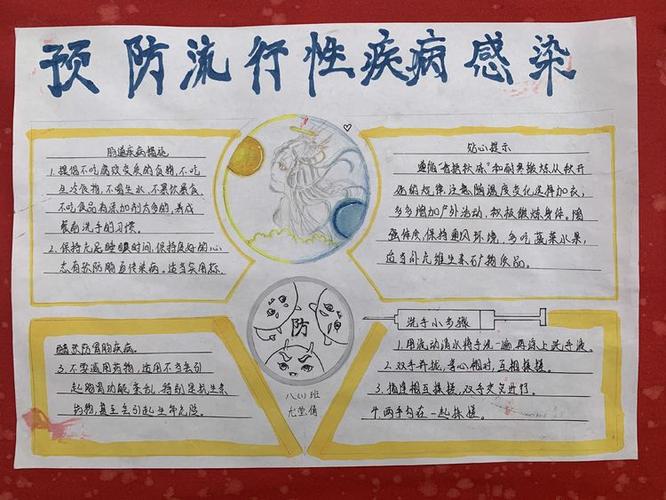 预防流行性疾病感染
肠道疾病措施
1.提倡不吃腐败变质的食物,不吃
生冷食物,不喝生水,不暴饮暴食
不吃食品有添加剂太多的,养成
餐前洗手的习惯。
2.保持充足睡眠时间,保持良好的心
态有效防肠道传染病。适当采用
醋预防胃肠疾病。
3.不要滥用药物,滥用不当会引
起肠胃功能紊乱,特别是抗生素
药物,甚至会引起生命危险。
贴心提示
遵循"春捂秋冻"和耐寒锻炼从秋开
始的规律,注意随温度变化选择加衣,
多多增加户外活动,积极锻炼身体。增
强体质,保持通风环境,多吃蔬菜水果,
适当补充维生素矿物质品。
防
八(1)班
尤莹倩
洗手小步骤
1.用流动清水将手洗一遍再涂上洗手液。
2.双手并拢,掌心相对,互相揉搓。
3.指缝相互揉搓,双手交叉进行。
4.两手勾在一起揉搓。